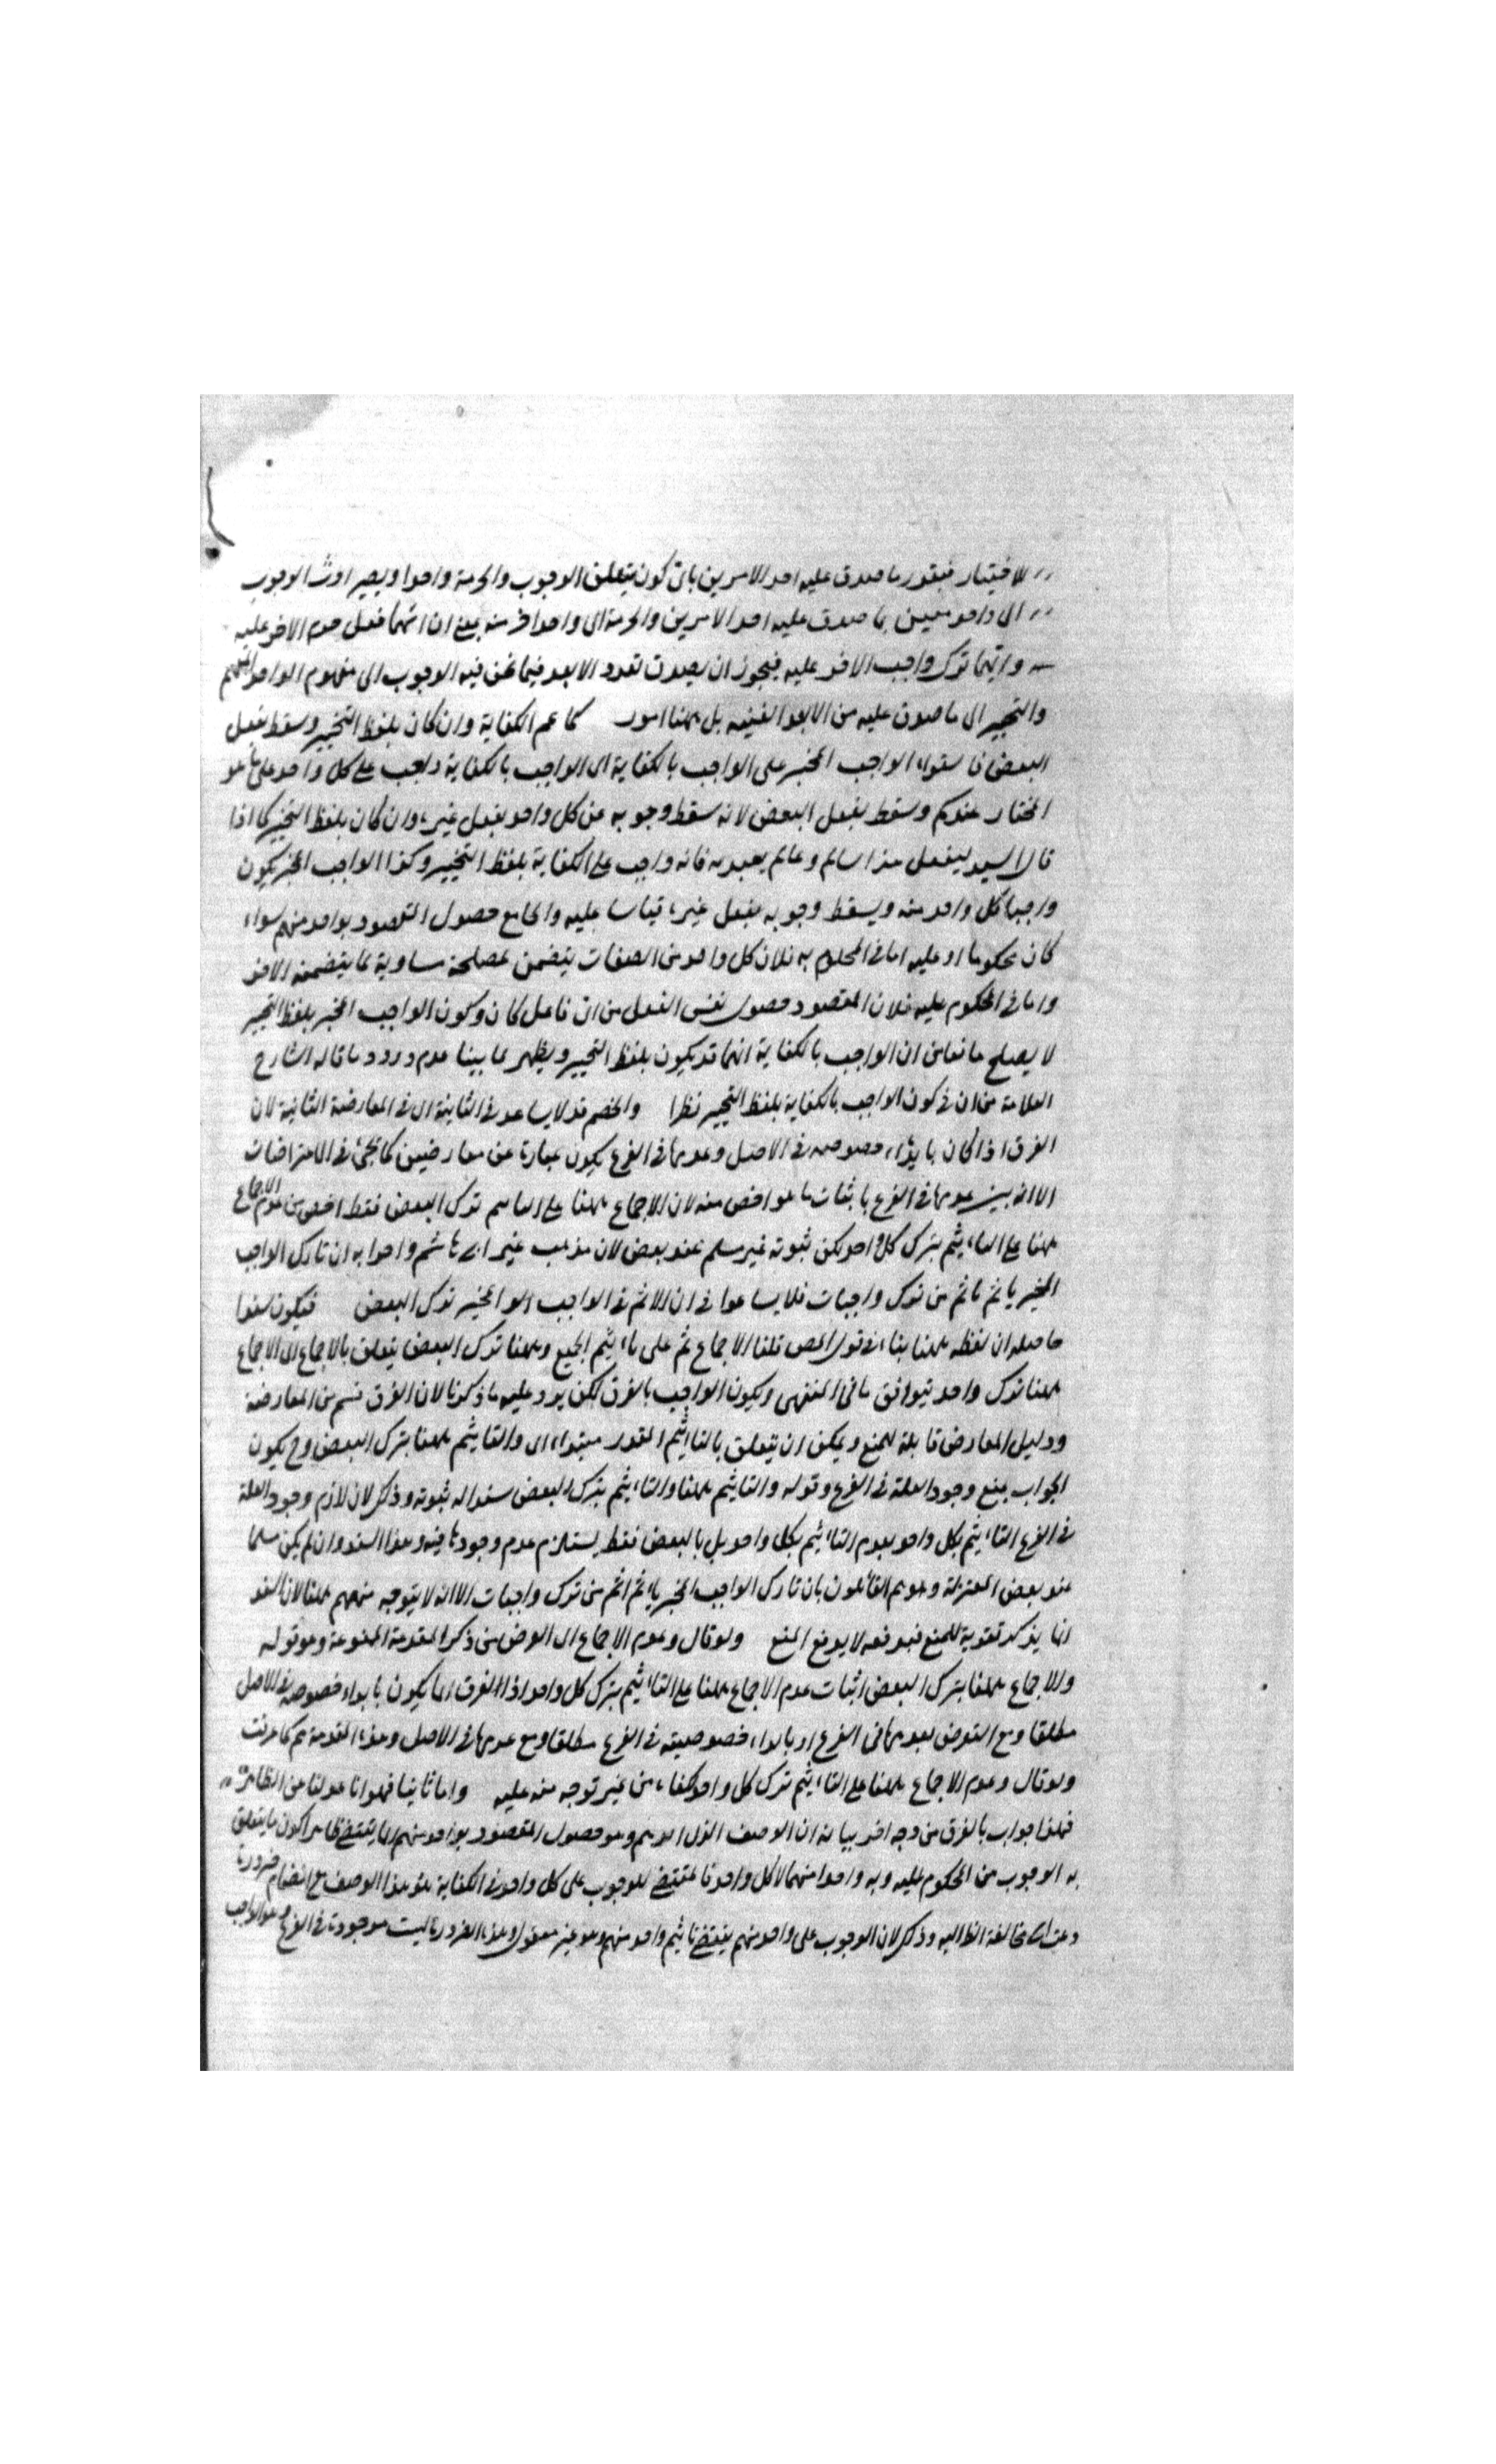 للاختيار فيتعدد ما صدق عليه احد الامرين بان كون متعلق الوجوب والحرمة واحدا ويصير اوث الوجوب
الى واحد معين بما صدق عليه احد الامرين والحرمة الى واحد اخر منه بمعنى ان ايهما فعل حرم الاخر عليه
وايهما ترك واجب الاخر عليه فيجوز ان يصدق تعدد الا بعد فيما نحن فيه الوجوب الى مفهوم الواحد المبهم
والتخيير الى ما صدق عليه من بل ههنا امور كما عم الكفاية وان كان بلفظ التخيير وسقط بفعل
البعض فاستواء الواجب المخير على الواجب بالكفاية اى الواجب بالكفاية واجب على كل واحد على ما هو
المختار عندكم وسقط بفعل البعض لانه سقط وجوبه عن كل واحد بفعل غيره وان كان بلفظ التخيير كما اذا
قال السيد ليفعل هذا سالم وغانم يعبد به فانه واجب على الكفاية بلفظ التخيير وكذا الواجب المخير يكون
واجبا كل واحد منه ويسقط وجوبه بفعل غيره قياسا عليه والجامع حصول المقصود بواحد منهم سواء
كان محكوما او عليه اما فى المحكوم به فلان كل واحد من الصفات يتضمن مصلحة مساوية لما يتضمنه الاخر
واما فى المحكوم عليه فلان المقصود حصول نفس الفعل من اى فاعل كان وكون الواجب المخير بلفظ التخيير
لا يصلح مانعا من ان الواجب بالكفاية انما قد يكون بلفظ التخيير ويظهر بما بينا عدم ورود ما قاله الشارح
العلامة من ان فى كون الواجب بالكفاية بلفظ التخيير نظرا والخصم قد لا يساعد فى الثانية اى فى المعارضة الثانية لان
الفرق اذا كان بابداء خصوصه فى الاصل وعدمها فى الفرع يكون عبارة عن معارضتين كما يجئ فى الاعتراضات
الا انه بين عدمها فى الفرع باثبات ما هو اخص منه لان الاجماع ههنا على التاثيم ترك البعض فقط اخص من عدم الاجماع
ههنا على التاثيم بترك كل واحد لكن ثبوته غير مسلم عند بعض لان مذهب غير ابى هاشم واصحابه ان تارك الواجب
المخير ياثم ماثم من ترك واجبات فلا يساعد فى ان الاثم فى الواجب المخير ترك البعض فيكون سندا
حاصله ان لفظه ههنا بناء فى قول المص قلنا الاجماع ثم على تاثيم الجميع وههنا ترك البعض يتعلق بالاجماع اى الاجماع
ههنا ترك واحد فيوافق ما فى المنتهى ويكون الواجب بالفرق لكن يرد عليه ما ذكرنا لان الفرق قسم من المعارضة
ودليل المعارض قابلة للمنع ويمكن ان يتعلق بالتاثيم المقدر مبتداء اى والتاثيم ههنا بترك البعض وح يكون
الجواب بمنع وجود العلة فى الفرع وقوله والتاثيم ههنا والتاثيم بترك البعض سندا له ثبوته وذكر لان لازم وجود العلة
فى الفرع التاثيم بكل واحد بعدم التاثيم بكل واحد بل بالبعض فقط يستلزم عدم وجودها فيه وهذا السند وان لم يكن مسلما
عند بعض المعتزلة وهم القائلون بان تارك الواجب المخير ياثم اثم من ترك واجبات الا انه لا يتوجه منعهم ههنا لان السند
انما يذكر تقوية للمنع فبدفعه لا يدفع المنع ولو قال وعدم الاجماع اى العرض من ذكر المقدمة الممنوعة وهو قوله
والاجماع ههنا بترك البعض اثبات عدم الاجماع ههنا على التاثيم بترك كل واحد اذ الفرق انما يكون بابداء خصوصية فى الاصل
مطلقا ومع التعرض بعدمها فى الفرع او بابداء خصوصيته فى الفرع مطلقا ومع عدمها فى الاصل وهذه المقدمة كما عرفت
ولو قال وعدم الاجماع ههنا على التاثيم ترك كل واحد كفاه من غير توجه منه عليه واما ثانيا فهو انا عدلنا عن الظاهر
فهذا جواب بالفرق من وجه اخر بيانه ان الوصف الذى وهو حصول المقصود بواحد منهم انما يقتضى ظاهرا كون ما يتعلق
به الوجوب من المحكوم عليه وبه واحدا منهما لا كل واحد فالمقتضى للوجوب على كل واحد فى الكفاية هو هذا الوصف مع انضمام ضرورة
دعت الى مخالفة الظاليه وذكر لان الوجوب على واحد منهم يقتضى تاثيم واحد منهم وهو غير معقول وهذه الضرورة ليست موجودة فى الفرع وهو الواجب